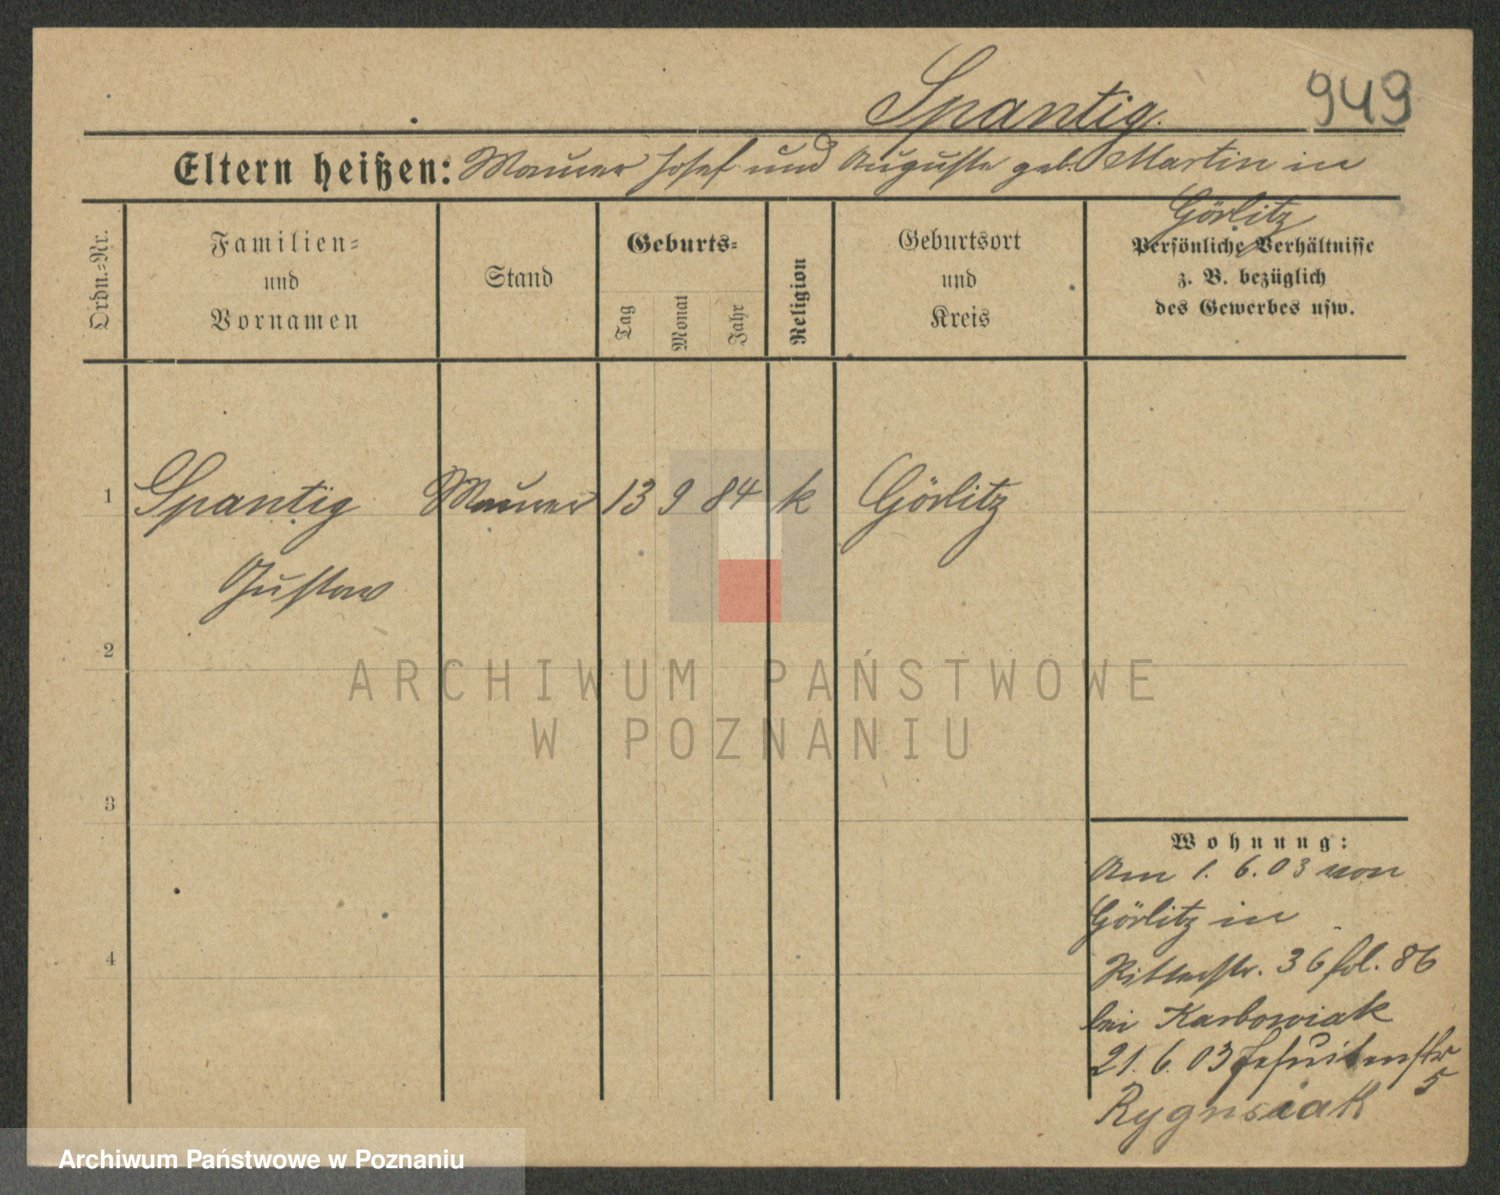 Spantig.
949
Eltern heißen: Maurer Josef und Auguste geb. Martin in
Görlitz
Ordn.=Nr.
Familien=
und
Vornamen
Stand
Geburts=
Tag
Monat
Jahr
Religion
Geburtsort
und
Kreis
Persönliche Verhältnisse
z. B. bezüglich
des Gewerbes usw.
1 Spantig Maurer 13 9 84 k Görlitz
Gustav
2
ARCHIWUM PAŃSTWOWE
W POZNANIU
3
Wohnung:
Am 1. 6. 03 von
Görlitz in
4
Ritterstr. 36 fol. 86
bei Karbowiak
21. 6. 03 Jesuitenstr
5
Archiwum Państwowe w Poznaniu